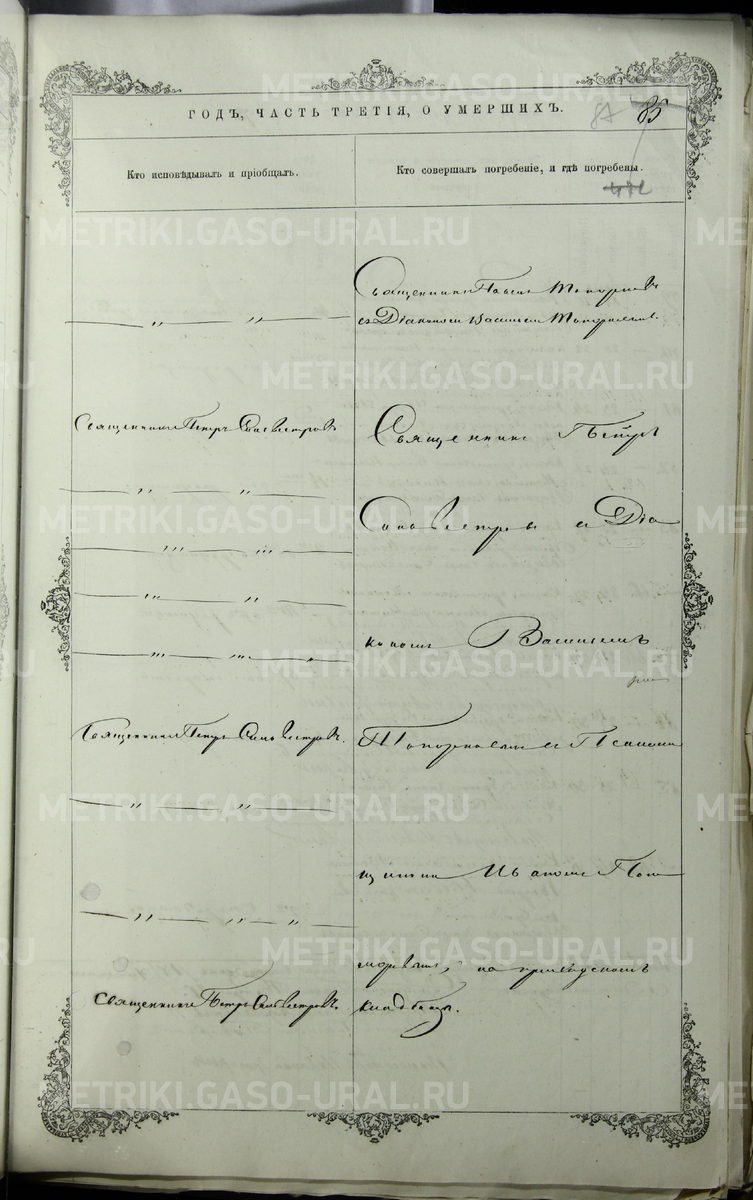 ГОДЪ, ЧАСТЬ ТРЕТІЯ, О УМЕРШИХЪ.
85
Кто исповѣдывалъ и пріобщалъ.
Кто совершалъ погребеніе, и гдѣ погребены.
METRIKI.GASO-URAL.RU
Священникъ Павелъ
съ Діакономъ Василіемъ Топорковымъ.
Священникъ Петръ Сильвестровъ
Священникъ Петръ
Сильвестровъ съ Діа
кономъ Василіемъ
Священникъ Петръ Сильвестровъ.
Топорковымъ и Псаломъ
щикомъ Иваномъ Поно
маревымъ, на приходскомъ
Священникъ Петръ Сильвестровъ.
кладбищѣ.